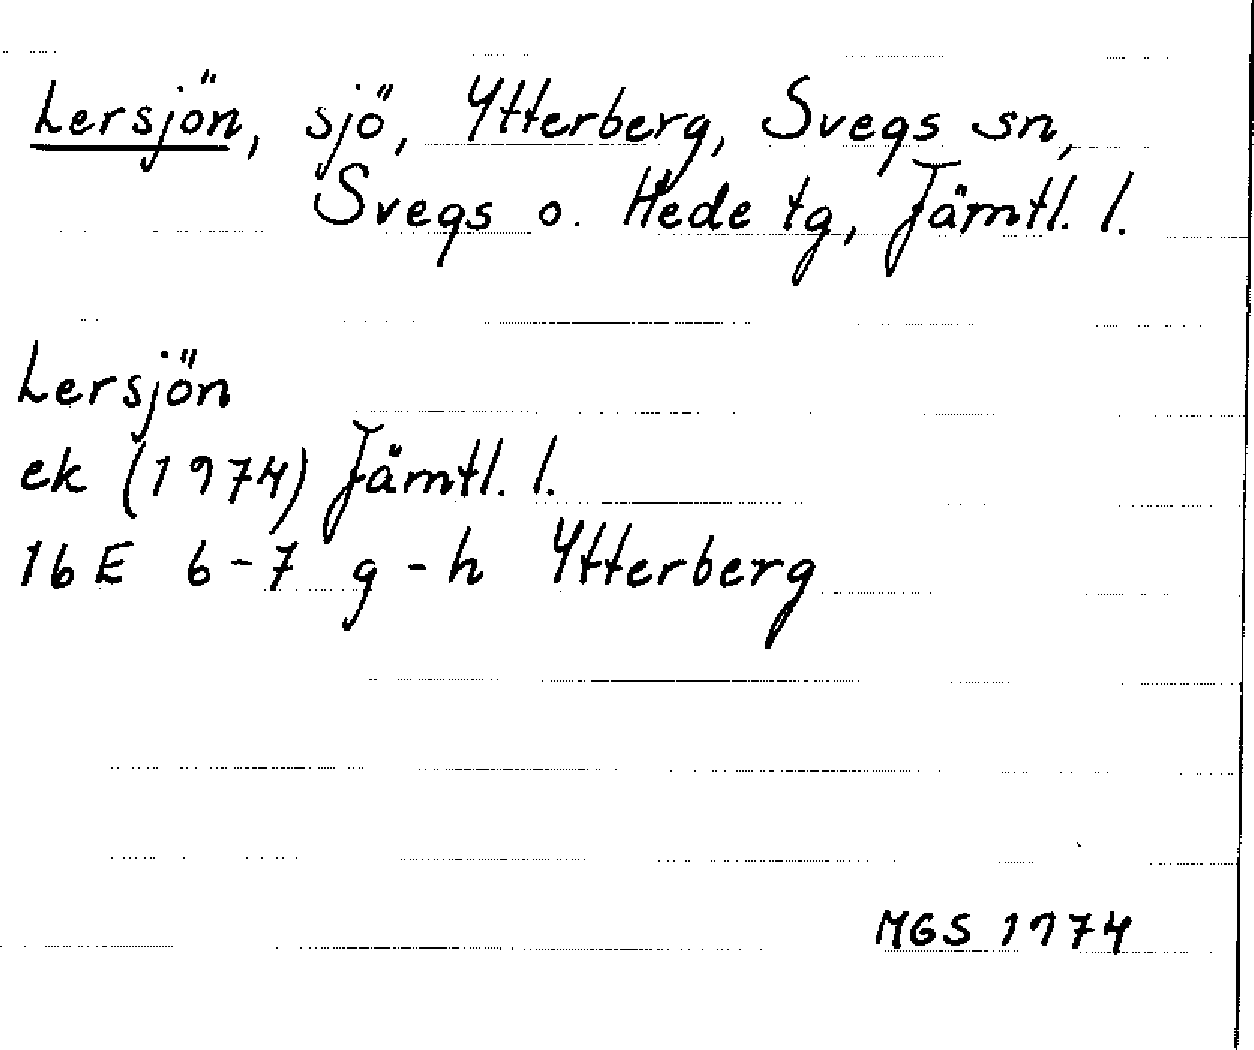 Lersjön, sjö, Ytterberg, Svegs sn,
Svegs o. Hede tg, Jämtl. l.
Lersjön
ek (1974) Jämtl. l.
16E 6-7 g-h Ytterberg
MGS 1974